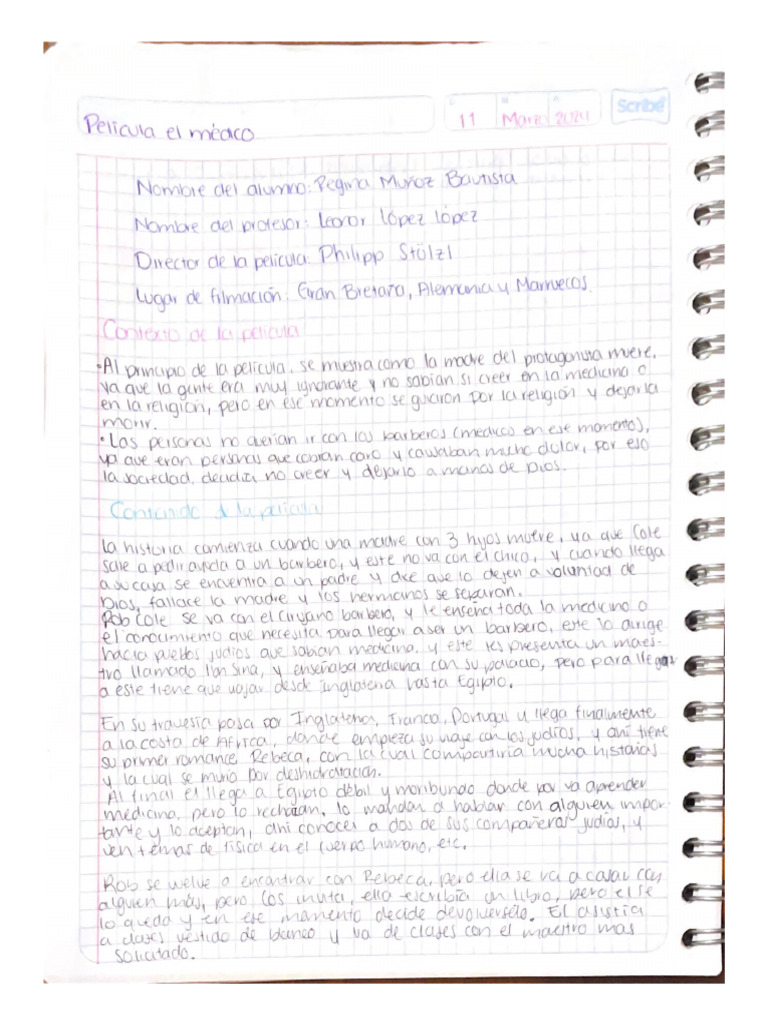 Película el médico
D M A
11 Marzo 2024
Scribe
Nombre del alumno: Regina Muñoz Bautista
Nombre del profesor: Leonor López López
Director de la película: Philipp Stölzl
Lugar de filmación: Gran Bretaña, Alemania y Marruecos.
Contexto de la película
•Al principio de la película, se muestra como la madre del protagonista muere,
ya que la gente era muy ignorante y no sabían si creer en la medicina o
en la religión, pero en ese momento se guiaron por la religión y dejarla
morir.
•Las personas no querían ir con los barberos (medicos en ese momento),
ya que eran personas que cobran caro y causaban mucho dolor, por eso
la sociedad, decidia no creer y dejarlo a manos de Dios.
Contenido d la película
la historia comienza cuando una madre con 3 hijos muere, ya que Cole
sale a pedir ayuda a un barbero, y este no va con el chico, y cuando llega
a su casa se encuentra a un padre y dice que lo dejen a voluntad de
Dios, fallace la madre y los hermanos se separan.
Rob Cole se va con el cirujano barbero, y le enseña toda la medicina o
el conocimiento que necesita para llegar a ser un barbero, este lo dirige
hacia pueblos judios que sabían medicina, y este les presenta un maes-
tro llamado Ibn Sina, y enseñaba medicina con su palacio, pero para llegar
a este tiene que viajar desde Inglaterra hasta Egipto.
En su travesía pasa por Inglaterra, Franca, Portugal y llega finalmente
a la costa de Africa, donde empieza su viaje con los judíos, y ahí tiene
su primer romance Rebeca, con la cual compartiría mucha historias
y la cual se murio por deshidratación.
Al final el llega a Egipto débil y moribundo donde por va aprender
medicina, pero lo rechazan, lo mandan a hablar con alguien impor-
tante y lo aceptan, ahi conocer a dos de sus compañeros judios, y
ven temas de física en el cuerpo humano, etc.
Rob se vuelve a encontrar con Rebeca, pero ella se va a casar con
alguien más, pero los invita, ella escribía un libro, pero el se
lo quedo y en ese momento decide devolverselo. El asistia
a clases vestido de blanco y va de clases con el maestro mas
solicitado.